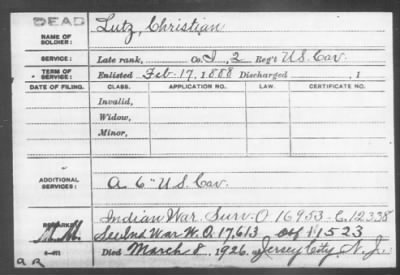 DEAD
NAME OF SOLDIER: Lutz, Christian
SERVICE: Late rank, Co. I, 2 Reg't U.S. Cav.
TERM OF SERVICE: Enlisted Feb. 17, 1888 Discharged , 1
DATE OF FILING. CLASS. APPLICATION NO. LAW. CERTIFICATE NO.
Invalid,
Widow,
Minor,
ADDITIONAL SERVICES: A 6" U.S. Cav.
Indian War. Surv. O 16953 - C. 12335
REMARKS: See Ind War W.O. 17,613 11523
Died March 8, 1926, Jersey City, N.J.